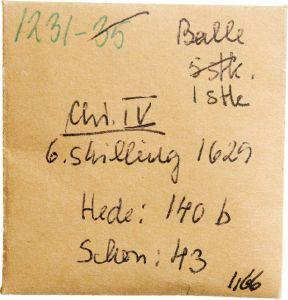 1231-35
Balle
5 stk.
1 stk
Chr. IV
6. skilling 1629
Hede: 140 b
Schon: 43
1,166